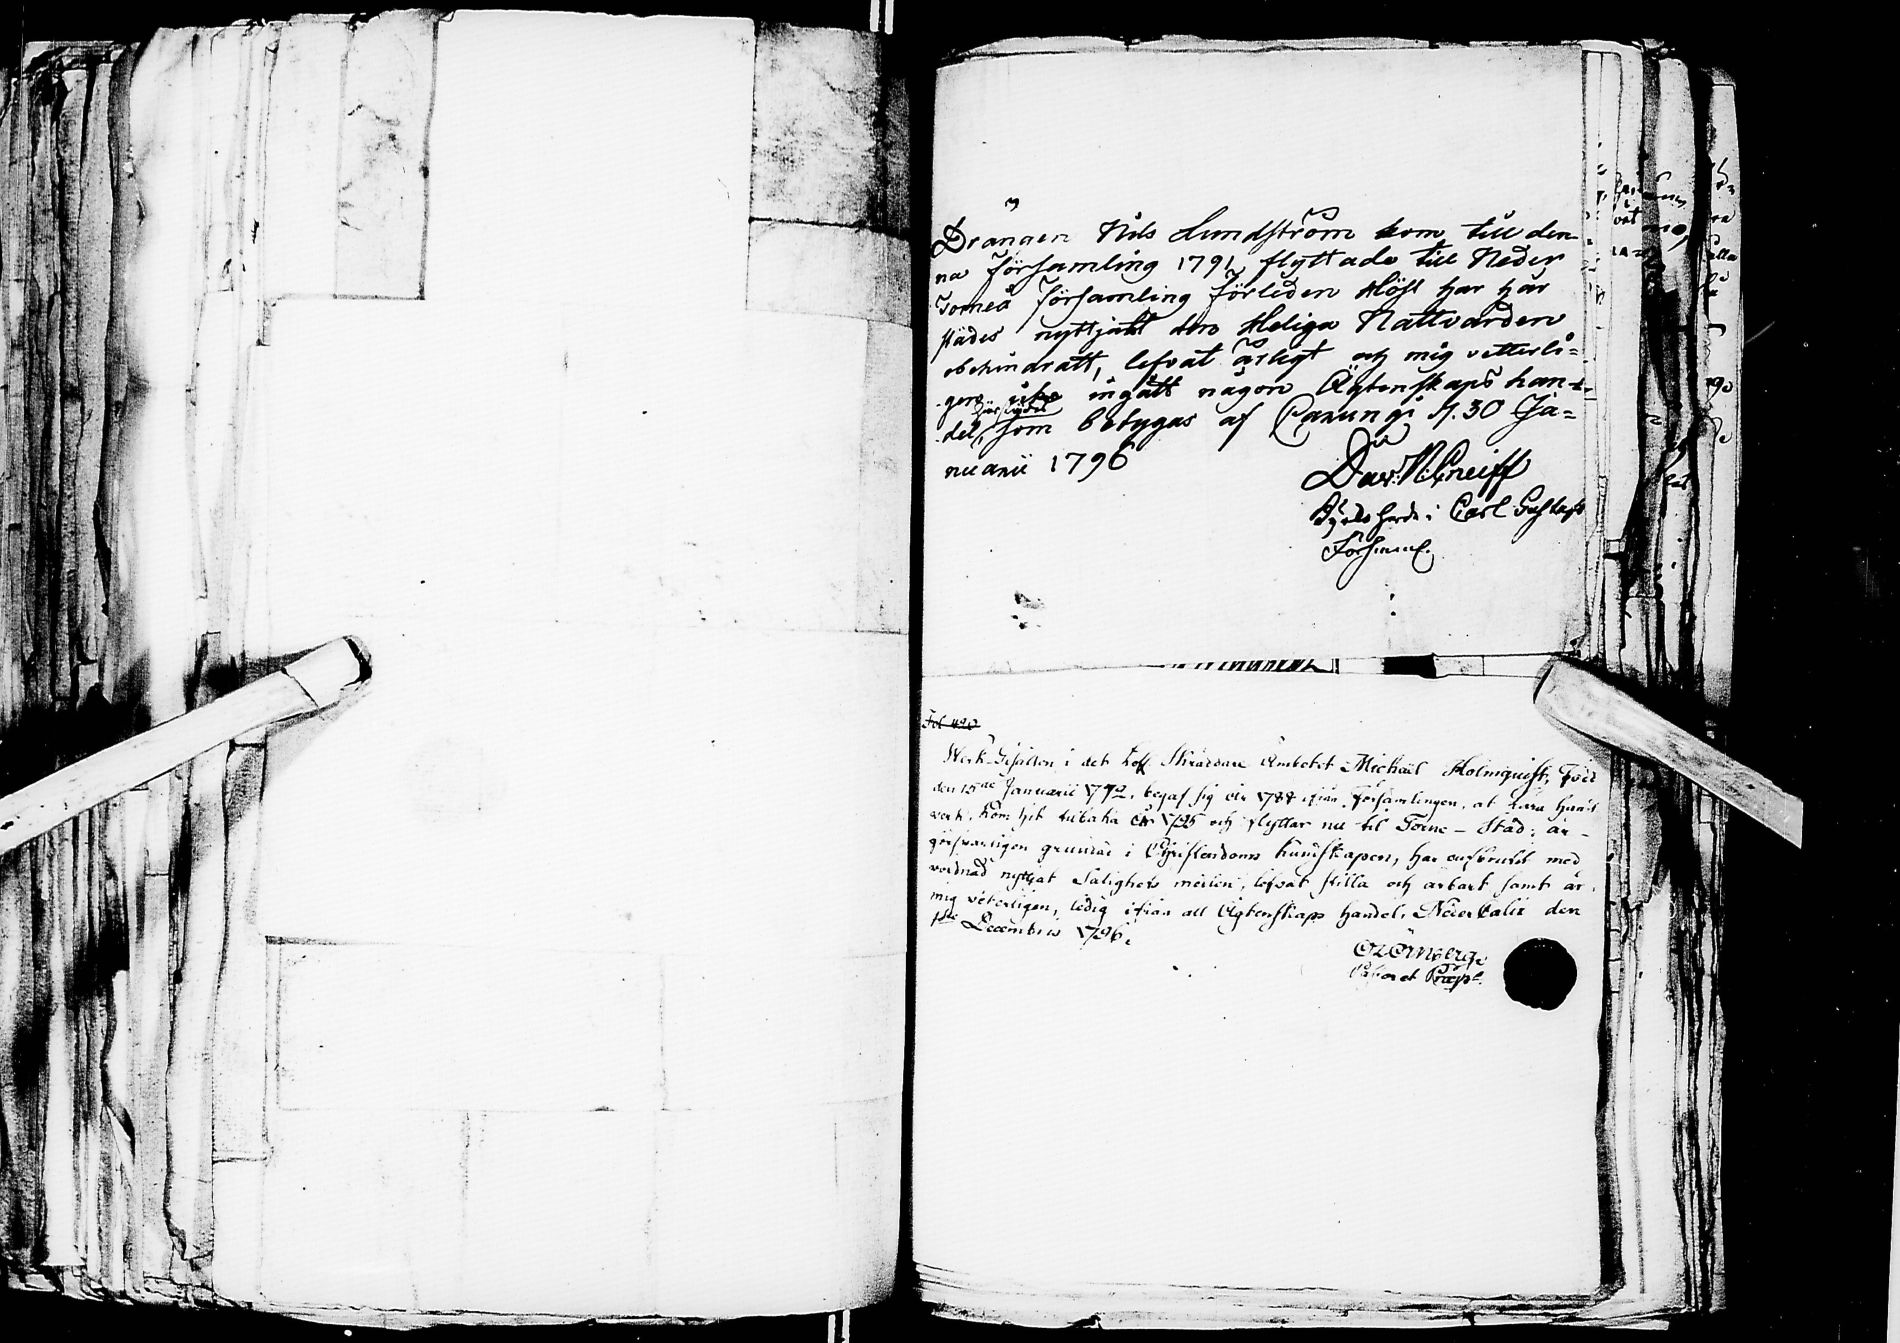 Drängen Nils Lundström kom till den-
na församling 1791, flyttade till Neder
Torneå församling förleden Höst har här
städes nyttjatt den Heliga Nattvarden
obehindratt, lefvat ärligt och mig vetterli=
gen icke ingått någon Ägtenskaps han-
härstädes
del, som betygas af Carungi d. 30 Ja=
nuarii 1796
Dav: N: Kneiff
i Carl Gustafs
Församl.
Fol 420
Werk-Gesällen i det Lofl Skräddare Embetet Michaël Holmquist, född
den 15de Januarii 1772, begaf sig år 1788 ifrån Församlingen, at lära handt
verk, kom hit tilbaka år 1795 och flyttar nu til Torne-Stad; är
försvarligen grundad i Christendoms kunskapen, har oafbrutit med
vördnad nyttjat Salighets medlen, lefvat stilla och ärbart samt är,
mig veterligen, ledig ifrån all Ägtenskaps handel. Neder Calix den
1ste Decembris 1796.
Ol Örnberg
Pastor et Præp.